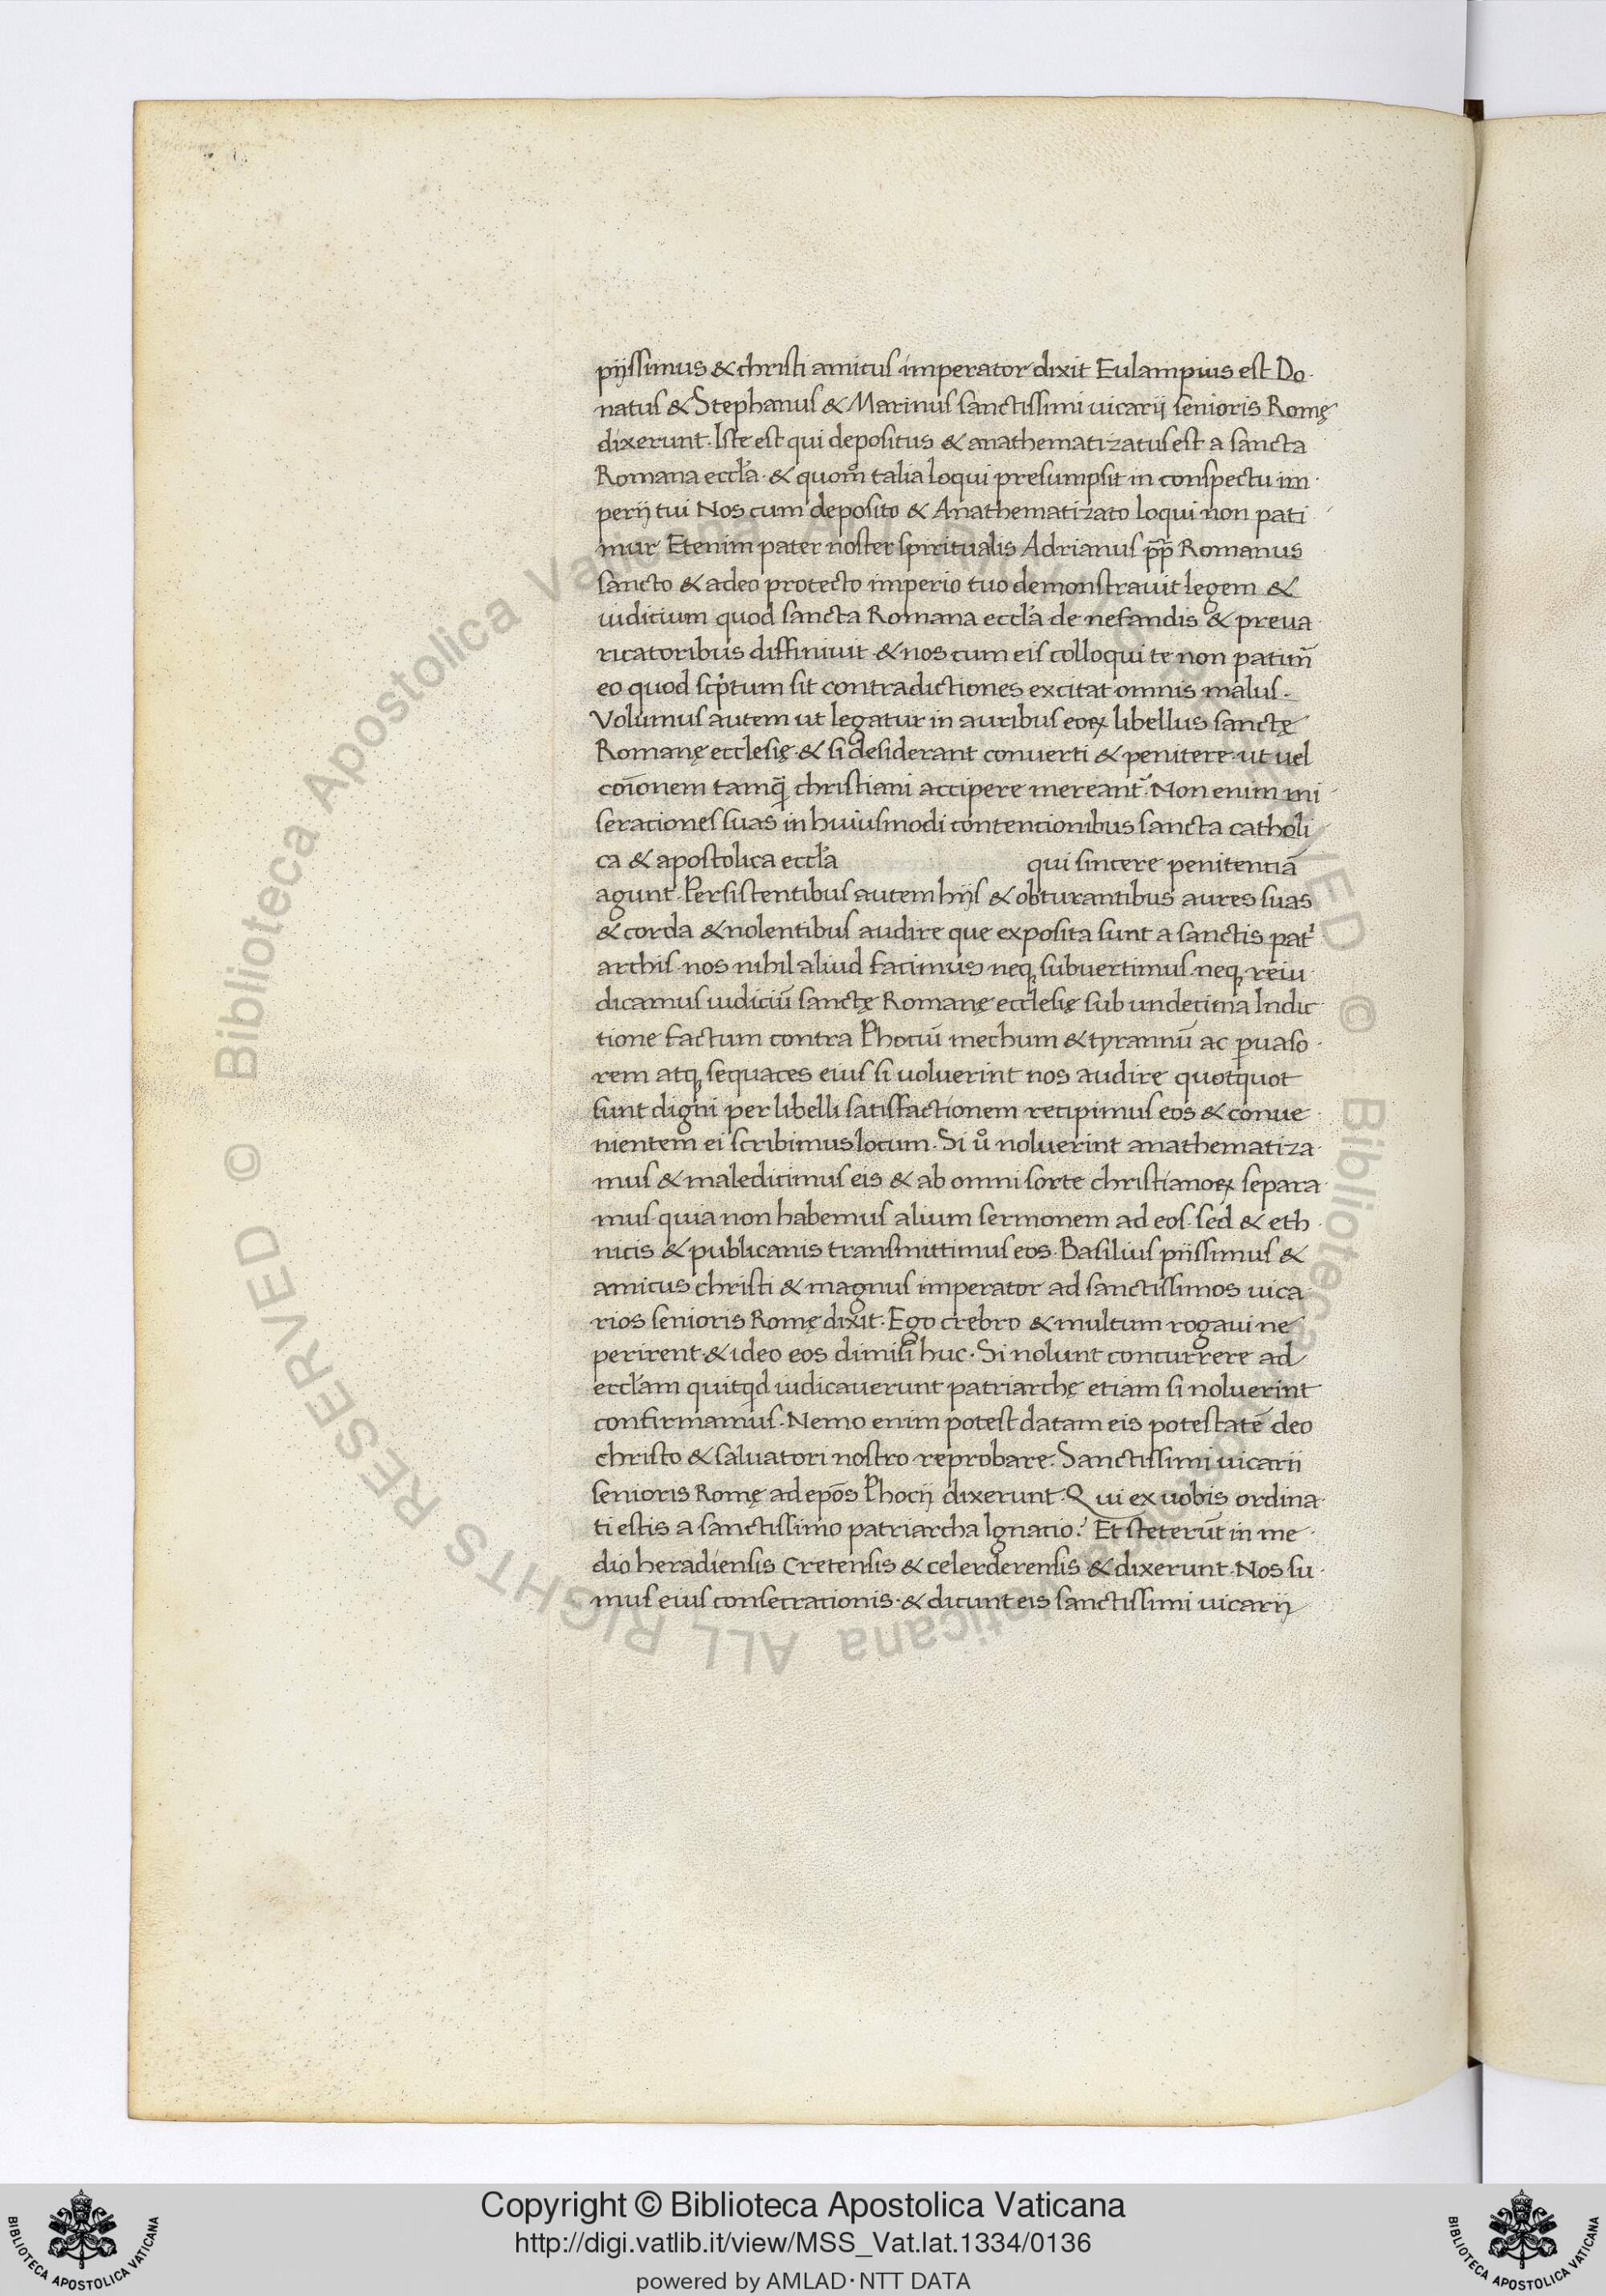 pijssimus & christi amicus imperator dixit Eulampius est Do
natus & Stephanus & Marinus sanctissimi uicarij senioris Romę
dixerunt. Iste est qui depositus & anathematizatus est a sancta
Romana eccl̃a. & quom̃ talia loqui presumpsit in conspectu im
perij tui Nos cum deposito & Anathematizato loqui non pati
mur Etenim pater noster spiritualis Adrianus p̃p̃ Romanus
sancto & adeo protecto imperio tuo demonstrauit legem &
iudicium quod sancta Romana eccl̃a de nefandis & preua
ricatoribus diffiniuit & nos cum eis colloqui te non patim̃
eo quod scp̃tum sit contradictiones excitat omnis malus.
Volumus autem ut legatur in auribus eoꝝ libellus sanctę
Romanę ecclesię. & si desiderant conuerti & penitere. ut uel
coĩonem tamq̃ christiani accipere mereant̃. Non enim mi
serationes suas in huiusmodi contencionibus sancta catholi
ca & apostolica eccl̃a qui sincere penitentiã
agunt. Persistentibus autem hijs & obturantibus aures suas
& corda & nolentibus audire que exposita sunt a sanctis patⁱ
archis. nos nihil aliud facimus neqꝫ subuertimus. neqꝫ reiu
dicamus iudiciũ sanctę Romanę ecclesię sub undecima Indic
tione factum contra Phociũ mechum & tyrannũ ac ꝑuaso
rem atqꝫ sequaces eius si uoluerint nos audire quotquot
sunt digni per libelli satisfactionem recipimus eos & conue
nientem ei scribimus locum. Si uº noluerint anathematiza
mus & maledicimus eis & ab omni sorte christianoꝝ separa
mus quia non habemus alium sermonem ad eos. sed & eth
nicis & publicanis transmittimus eos. Basilius piissimus &
amicus christi & magnus imperator ad sanctissimos uica
rios senioris Romę dixit. Ego crebro & multum rogaui ne
perirent & ideo eos dimisi huc. Si nolunt concurrere ad
eccl̃am quitqd iudicauerunt patriarchę etiam si noluerint
confirmamus. Nemo enim potest datam eis potestatẽ deo
christo & saluatori nostro reprobare. Sanctissimi uicarii
senioris Romę ad ep̃os Phocij dixerunt. Qui ex uobis ordina
ti estis a sanctissimo patriarcha Ignacio? Et steterũt in me
dio heradiensis Cretensis & celerderensis & dixerunt. Nos su
mus eius consecrationis. & dicunt eis sanctissimi uicarij
© Biblioteca Apostolica Vaticana ALL RIGHTS RESERVED © Biblioteca Apostolica Vaticana ALL RIGHTS RESERVED
Copyright © Biblioteca Apostolica Vaticana
http://digi.vatlib.it/view/MSS_Vat.lat.1334/0136
powered by AMLAD·NTT DATA
BIBLIOTECA APOSTOLICA VATICANA
BIBLIOTECA APOSTOLICA VATICANA